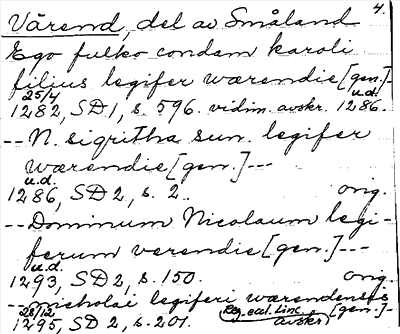 4.
Värend, del av Småland
Ego fulko condam karoli
filius legifer wærendie [gen.]
25/4 u.d.
1282, SD 1, s. 596. vidim. avskr. 1286.
-- N. sigritha sun. legifer
wærendie [gen.] ---
u.d.
1286, SD 2, s. 2. orig.
-- Dominum Nicolaum legi-
ferum verendie [gen.] ---
u.d.
1293, SD 2, s. 150. orig.
-- nicholai legiferi warendensis [gen.] --
28/12 Reg. eccl. Linc.
1295, SD 2, s. 201. avskr.